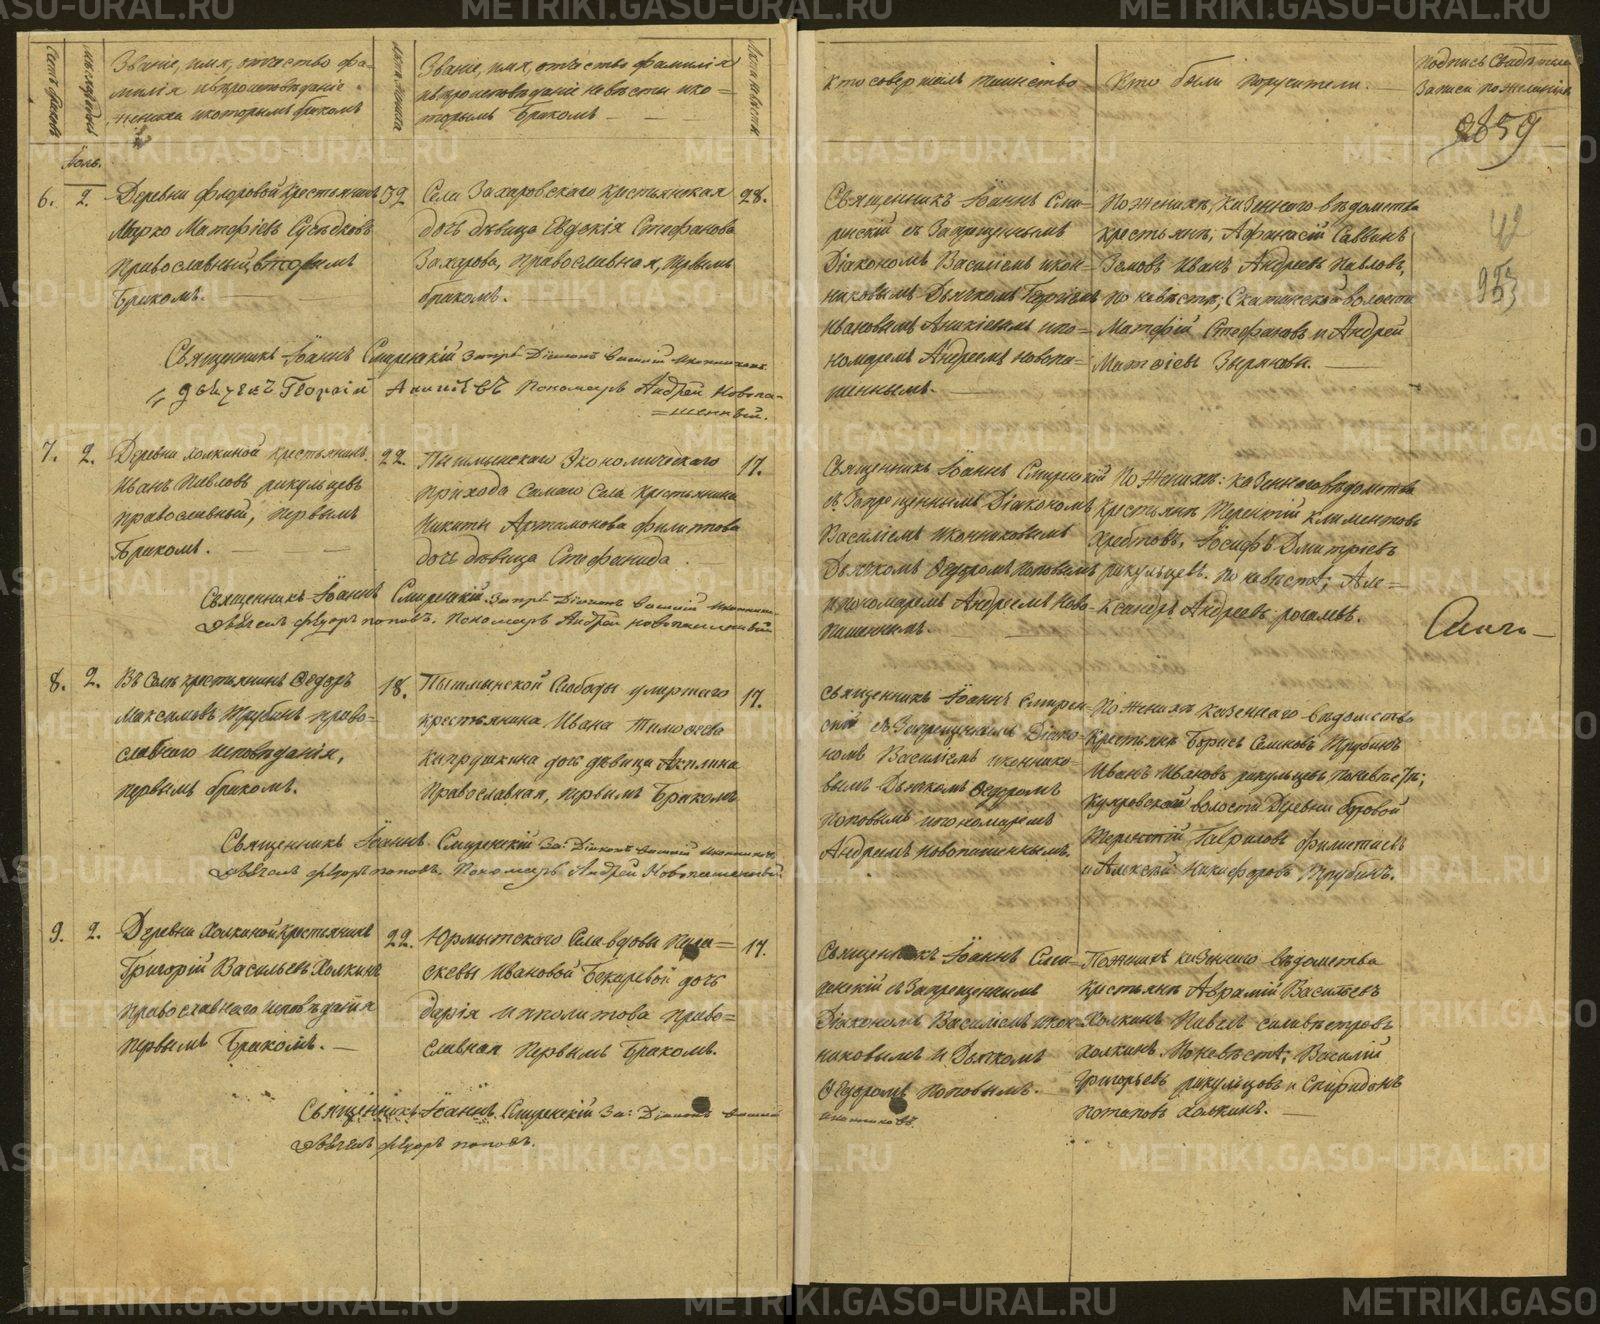 Счетъ браковъ
мѣсяцъ и день
Званіе, имя, отчество фа=
милія и вѣроисповѣданіе
жениха и которымъ бракомъ
лѣта жениха
Званіе, имя, отчество фамилія
и вѣроисповѣданіе невѣсты и ко=
торымъ бракомъ
Лѣта невѣсты
Кто совершалъ таинство
Кто были поручители.
Подпись свидѣтелей
записи по желанію
2859
6. 2.
Деревни Федоровой крестьянинъ
Марко Матфіевъ Сусѣдковъ
Православный, вторымъ
бракомъ.
32
Села Захаровскаго крестьянская
дочь дѣвица Евдокія Стефанова
Захарова, православная, первымъ
бракомъ.
28.
Священникъ Іоаннъ Сми=
ренскій съ Запрещеннымъ
Діакономъ Василіемъ Икон=
никовымъ Дьячкомъ Георгіемъ
Ивановымъ Аникіевымъ и по=
номаремъ Андреемъ Новопа=
шеннымъ.
По женихѣ, казеннаго вѣдомства
крестьяне, Афанасій Саввинъ
Земовъ Иванъ Андреевъ Павловъ,
по невѣстѣ; Скатинской волости
Матфій Стефановъ и Андрей
Матфіевъ Зыряновы.
42
953
Священникъ Іоаннъ Смиренскій Запрѣ Діаконъ Василій Иконниковъ
Дьячекъ Георгій Аникіевъ Пономарь Андрей Новопа=
=шенный.
7. 2.
Деревни Холкиной крестьянинъ
Иванъ Павловъ рякульцевъ
православный, первымъ
Бракомъ.
22.
Пышминскаго Экономическаго
прихода Самаго Села крестьянина
Никиты Артамонова Филитова
дочь дѣвица Стефанида
17.
Священникъ Іоаннъ Смиренскій
съ Запрещеннымъ Діакономъ
Василіемъ Иконниковымъ
Дьячкомъ Ѳедоромъ Поповымъ
и пономаремъ Андреемъ Ново=
пашеннымъ.
По женихѣ: казеннаго вѣдомства
крестьяне Терентій Климентовъ
Хребтовъ, Іосифъ Дмитріевъ
рякульцевъ. По невѣстѣ; Але=
ксандръ Андреевъ рогалевъ.
Священникъ Іоаннъ Смиренскій. Запрѣ Діаконъ Василій Иконник.
Дьячекъ Ѳедоръ поповъ. Пономарь Андрей Новопашенный
8. 2.
Въ Селѣ крестьянинъ Ѳедоръ
Максимовъ Трубинъ право=
славнаго исповѣданія,
первымъ бракомъ.
18.
Пышминской Слободы умершаго
крестьянина Ивана Тимофеева
Кипрушкина дочь дѣвица Акилина
Православная, первымъ Бракомъ
17.
Священникъ Іоаннъ Смирен=
скій съ Запрещеннымъ Діако=
номъ Василіемъ Иконнико=
вымъ Дьячкомъ Ѳедоромъ
Поповымъ и пономаремъ
Андреемъ Новопашеннымъ.
По женихѣ казеннаго вѣдомства
крестьяне Борисъ Семеновъ Трубинъ
Иванъ Ивановъ рякульцевъ По невѣстѣ;
Куяровской волости Деревни бутовой
Терентій Гавриловъ Филитаевъ
и Алексѣй Никифоровъ Трубинъ.
Священникъ Іоаннъ Смиренскій За: Діаконъ Василій Иконниковъ
Дьячекъ Ѳедоръ поповъ. Пономарь Андрей Новопашенный.
9. 2.
Деревни Холкиной крестьянинъ
Григорій Васильевъ Холкинъ
православнаго исповѣданія
первымъ Бракомъ.
22.
Юрмытскаго Села вдовы Пара=
скевы Ивановой Бекаревой дочь
дарія Иполитова право=
славная первымъ Бракомъ.
17.
Священникъ Іоаннъ Сми=
ренскій съ Запрещеннымъ
Діакономъ Василіемъ Икон=
никовымъ и Дьячкомъ
Ѳедоромъ Поповымъ.
По женихѣ казеннаго вѣдомства
крестьяне Аврамій Васильевъ
Холкинъ Павелъ силивѣстровъ
холкинъ. По невѣстѣ; Василій
Григорьевъ рякульцовъ и Спиридонъ
потаповъ холкинъ.
Священникъ Іоаннъ Смиренскій За: Діаконъ Василій
Иконниковъ.
Дьячекъ Ѳедоръ поповъ.
METRIKI.GASO-URAL.RU